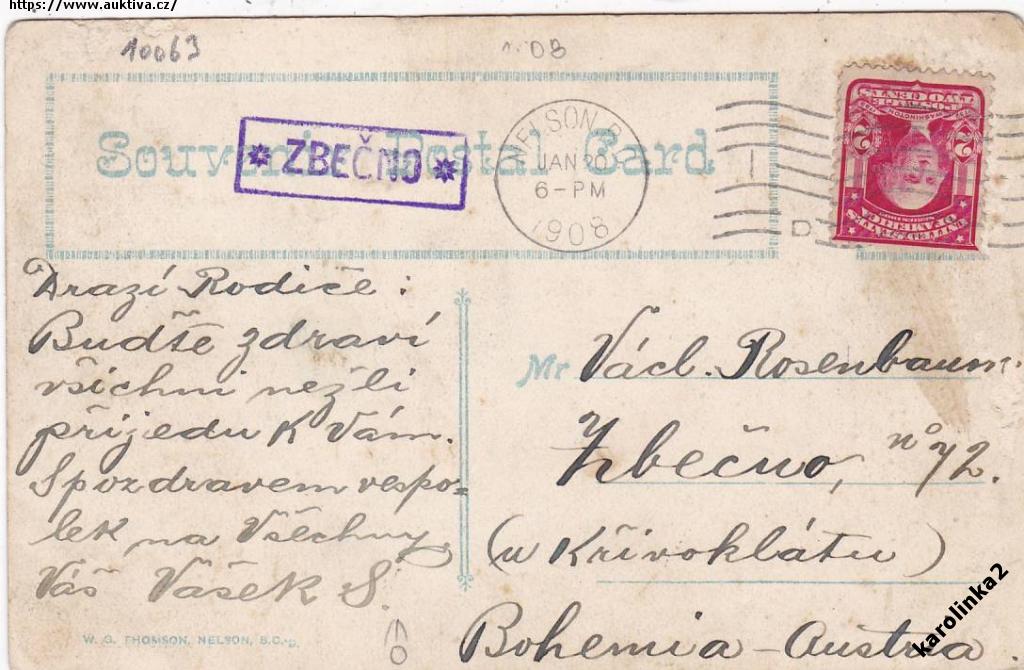 https://www.auktiva.cz/
10063
1908
Souvenir Postal Card
* ZBEČNO *
NELSON B
JAN 20
6-PM
1908
D
2 2
TWO CENTS
UNITED STATES
OF AMERICA
Drazí Rodiče:
Buďte zdraví
všichni nežli
přijedu K Vám.
S pozdravem vespo=
lek na Všechny,
Váš Vašek S.
Mr Václ. Rosenbaum.
Zbečno, nº 72.
(u Křivoklátu)
Bohemia - Austria.
W. G. THOMSON, NELSON, B.C.
karolinka2